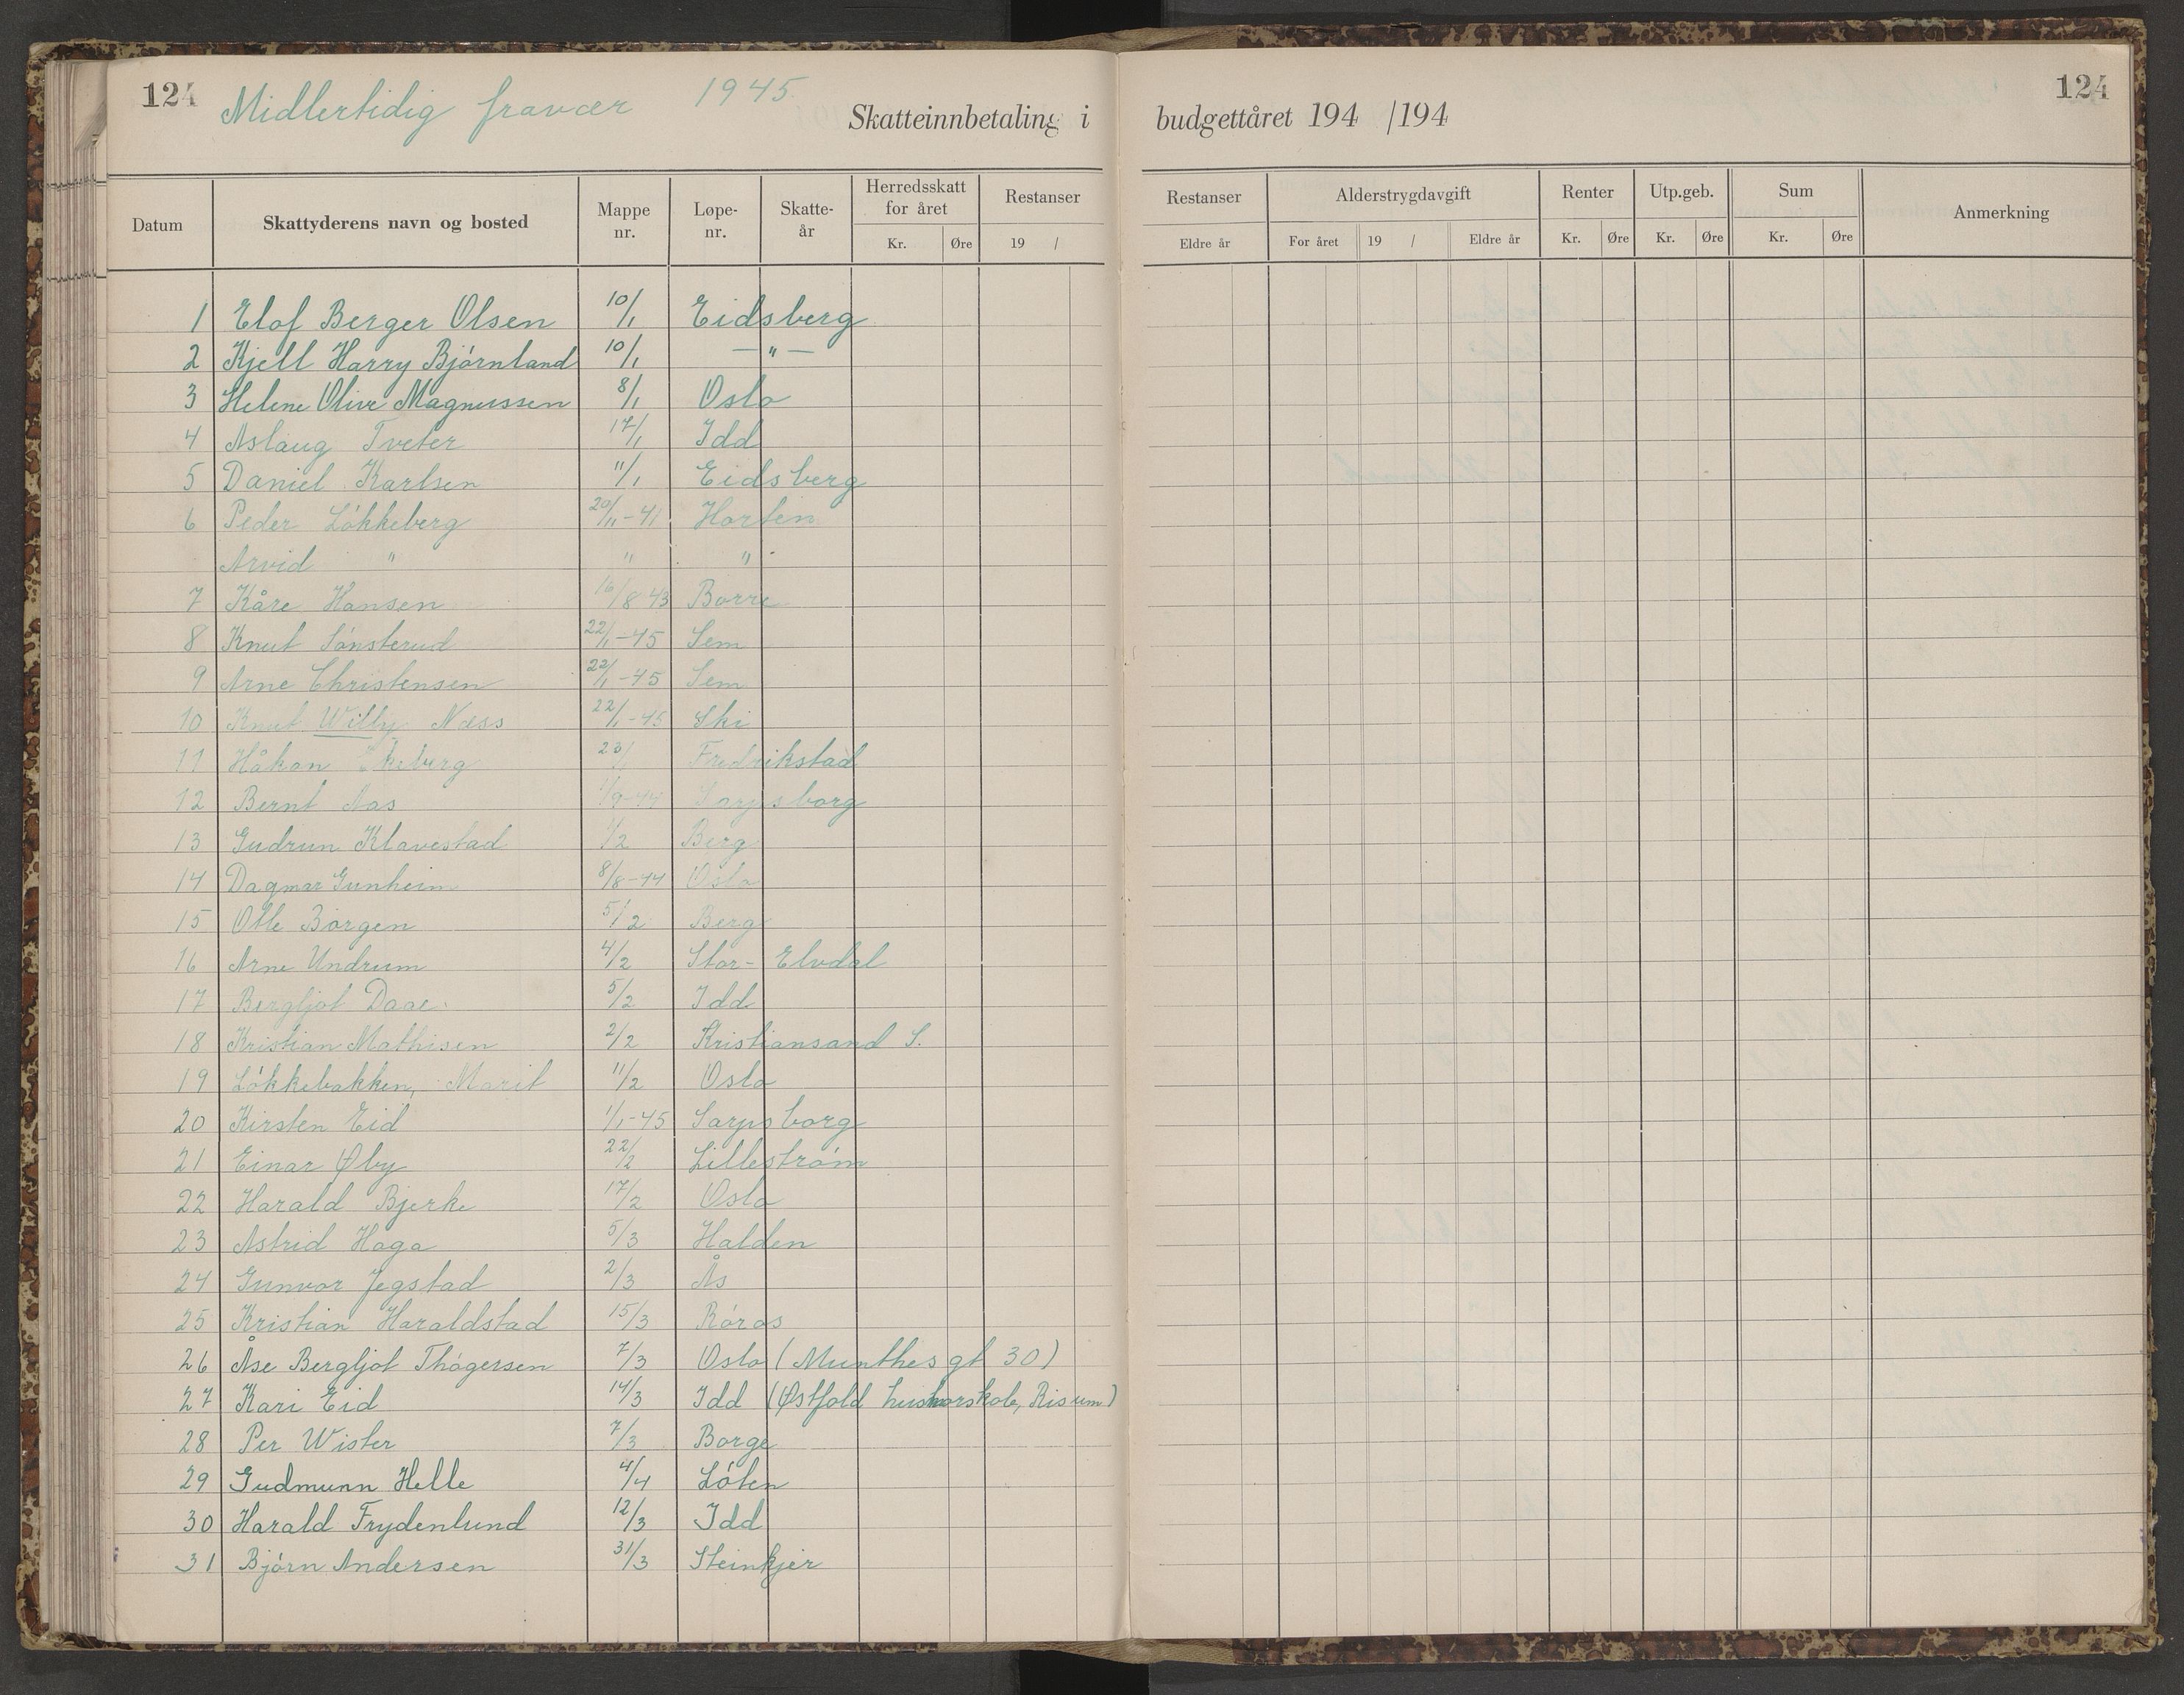 124 Midlertidig fravær 1945 Skatteinnbetaling i budgettåret 194 /194 124
Datum Skattyderens navn og bosted Mappe nr. Løpe- nr. Skatte- år Herredsskatt for året Kr. Øre Restanser 19 / Restanser Eldre år Alderstrygdavgift For året 19 / Eldre år Renter Kr. Øre Utp.geb. Kr. Øre Sum Kr. Øre Anmerkning
1 Elof Berger Olsen 10/1 Eidsberg
2 Kjell Harry Bjørnland 10/1 — " —
3 Helene Olive Magnussen 8/1 Oslo
4 Aslaug Tveter 17/1 Idd
5 Daniel Karlsen 11/1 Eidsberg
6 Peder Løkkeberg 20/11-41 Horten
Arvid " " "
7 Kåre Hansen 16/8 43 Borre
8 Knut Sønsterud 22/1-45 Sem
9 Arne Christensen 22/1-45 Sem
10 Knut Willy Næss 22/1-45 Ski
11 Håkon 23/1 Fredrikstad
12 Bernt Aas 1/9-44 Sarpsborg
13 Gudrun Klavestad 1/2 Berg
14 Dagmar Gunheim 8/8-44 Oslo
15 Olle Borgen 5/2 Berg
16 Arne Undrum 4/2 Stor- Elvdal
17 Bergljot Daae 5/2 Idd
18 Kristian Mathisen 2/2 Kristiansand S.
19 Løkkebakken, Marit 11/2 Oslo
20 Kirsten Eid 1/1-45 Sarpsborg
21 Einar Øby 22/2 Lillestrøm
22 Harald Bjerke 17/2 Oslo
23 Astrid Haga 5/3 Halden
24 Gunvor Jegstad 2/3 Ås
25 Kristian Haraldstad 15/3 Røros
26 Åse Bergljot Thøgersen 7/3 Oslo (Munthes gt 30)
27 Kari Eid 14/3 Idd (Østfold husmorskole, Risum)
28 Per Wister 7/3 Borge
29 Gudmunn Helle 4/4 Løten
30 Harald Frydenlund 12/3 Idd
31 Bjørn Andersen 31/3 Steinkjer